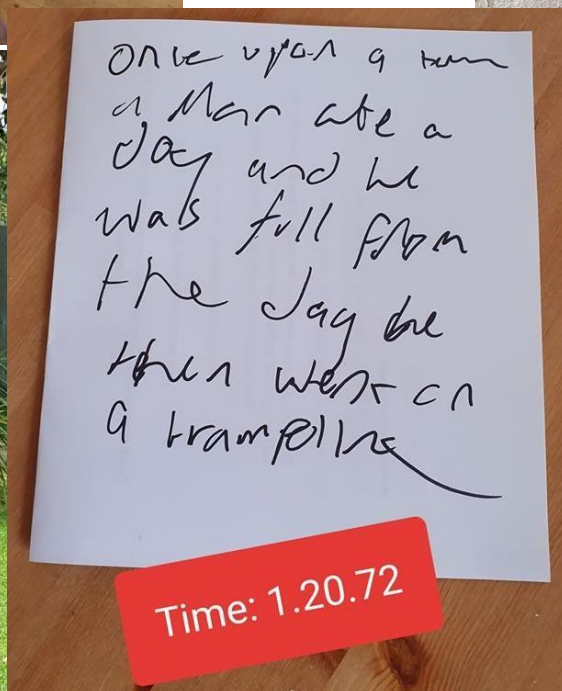 once upon a
a Man ate a
dog and he
was full from
the dog he
then went on
a trampoline
Time: 1.20.72